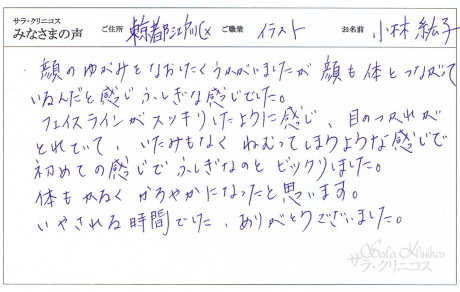 サラ・クリニコス
みなさまの声
ご住所 東京都江戸川区 ご職業 イラスト お名前 小林絵子
顔のゆがみをなおしたくうかがいましたが顔も体とつながって
いるんだと感じふしぎな感じでした。
フェイスラインがスッキリしたように感じ、目のつかれが
とれていて、いたみもなくねむってしまうような感じで
初めての感じでふしぎなのとビックリしました。
体もかるくかろやかになったと思います。
いやされる時間でした、ありがとうございました。
Sala Klinikos
サラ・クリニコス